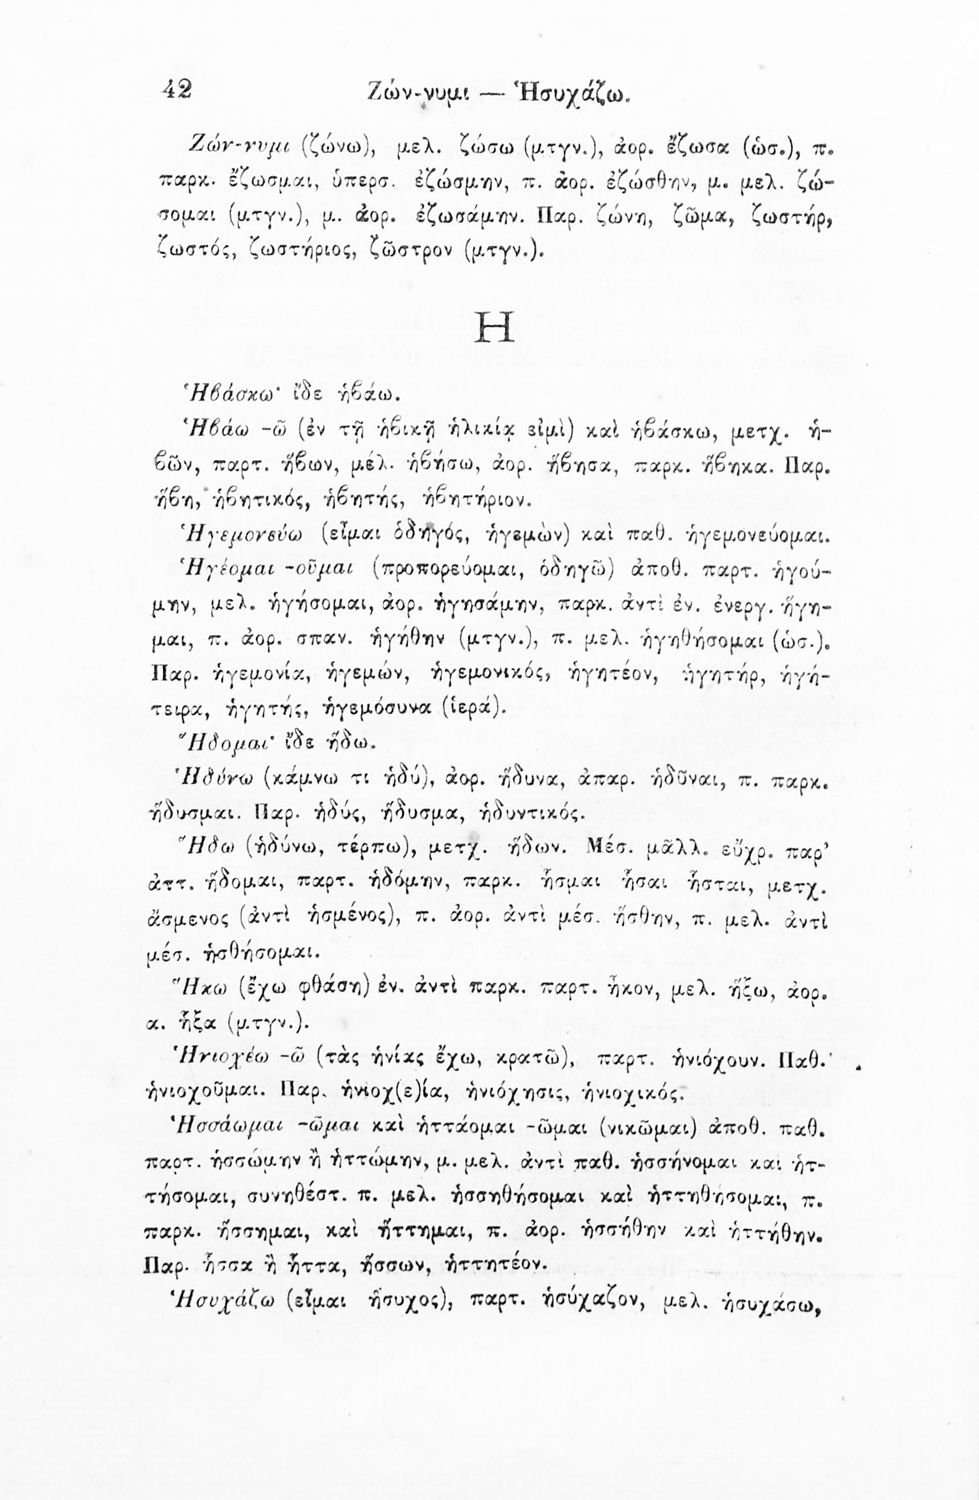 42 Ζών-νυμι — Ἡσυχάζω.
Ζών-νυμι (ζώνω), μελ. ζώσω (μτγν.), ἀορ. ἔζωσα (ὡσ.), π.
παρκ. ἔζωσμαι, ὑπερσ. ἐζώσμην, π. ἀορ. ἐζώσθην, μ. μελ. ζώ-
σομαι (μτγν.), μ. ἀορ. ἐζωσάμην. Παρ. ζώνη, ζῶμα, ζωστήρ,
ζωστός, ζωστήριος, ζῶστρον (μτγν.).
Η
Ἡβάσκω· ἴδε ἡβάω.
Ἡβάω -ῶ (ἐν τῇ ἡβικῇ ἡλικίᾳ εἰμὶ) καὶ ἡβάσκω, μετχ. ἡ-
βῶν, παρτ. ἥβων, μέλ. ἡβήσω, ἀορ. ἥβησα, παρκ. ἥβηκα. Παρ.
ἥβη, ἡβητικός, ἡβητής, ἡβητήριον.
Ἡγεμονεύω (εἶμαι ὁδηγός, ἡγεμὼν) καὶ παθ. ἡγεμονεύομαι.
Ἡγέομαι -οῦμαι (προπορεύομαι, ὁδηγῶ) ἀποθ. παρτ. ἡγού-
μην, μελ. ἡγήσομαι, ἀορ. ἡγησάμην, παρκ. ἀντὶ ἐν. ἐνεργ. ἥγη-
μαι, π. ἀορ. σπαν. ἡγήθην (μτγν.), π. μελ. ἡγηθήσομαι (ὡσ.).
Παρ. ἡγεμονία, ἡγεμών, ἡγεμονικός, ἡγητέον, ἡγητήρ, ἡγή-
τειρα, ἡγητής, ἡγεμόσυνα (ἱερά).
Ἥδομαι· ἴδε ἥδω.
Ἡδύνω (κάμνω τι ἡδύ), ἀορ. ἥδυνα, ἀπαρ. ἡδῦναι, π. παρκ.
ἥδυσμαι. Παρ. ἡδύς, ἥδυσμα, ἡδυντικός.
Ἥδω (ἡδύνω, τέρπω), μετχ. ἥδων. Μέσ. μᾶλλ. εὔχρ. παρ’
ἀττ. ἥδομαι, παρτ. ἡδόμην, παρκ. ἧσμαι ἧσαι ἧσται, μετχ.
ἅσμενος (ἀντὶ ἡσμένος), π. ἀορ. ἀντὶ μέσ. ἥσθην, π. μελ. ἀντὶ
μέσ. ἡσθήσομαι.
Ἥκω (ἔχω φθάση) ἐν. ἀντὶ παρκ. παρτ. ἧκον, μελ. ἥξω, ἀορ.
α. ἧξα (μτγν.).
Ἡνιοχέω -ῶ (τὰς ἡνίας ἔχω, κρατῶ), παρτ. ἡνιόχουν. Παθ.
ἡνιοχοῦμαι. Παρ. ἡνιοχ(ε)ία, ἡνιόχησις, ἡνιοχικός.
Ἡσσάωμαι -ῶμαι καὶ ἡττάομαι -ῶμαι (νικῶμαι) ἀποθ. παθ.
παρτ. ἡσσώμην ἢ ἡττώμην, μ. μελ. ἀντὶ παθ. ἡσσήνομαι καὶ ἡτ-
τήσομαι, συνηθέστ. π. μελ. ἡσσηθήσομαι καὶ ἡττηθήσομαι, π.
παρκ. ἥσσημαι, καὶ ἥττημαι, π. ἀορ. ἡσσήθην καὶ ἡττήθην.
Παρ. ἧσσα ἢ ἧττα, ἥσσων, ἡττητέον.
Ἡσυχάζω (εἶμαι ἥσυχος), παρτ. ἡσύχαζον, μελ. ἡσυχάσω,